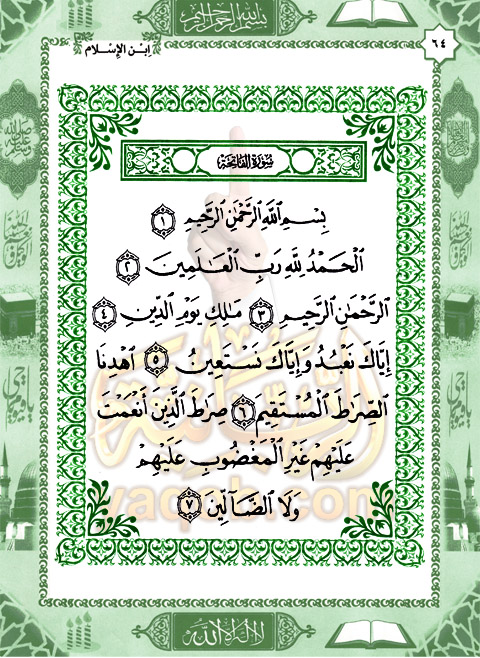 بسم الله الرحمن الرحيم
٦٤
ابن الإسلام
سورة الفاتحة
بِسْمِ ٱللَّهِ ٱلرَّحْمَٰنِ ٱلرَّحِيمِ ١
ٱلْحَمْدُ لِلَّهِ رَبِّ ٱلْعَٰلَمِينَ ٢
ٱلرَّحْمَٰنِ ٱلرَّحِيمِ ٣ مَٰلِكِ يَوْمِ ٱلدِّينِ ٤
إِيَّاكَ نَعْبُدُ وَإِيَّاكَ نَسْتَعِينُ ٥ ٱهْدِنَا
ٱلصِّرَٰطَ ٱلْمُسْتَقِيمَ ٦ صِرَٰطَ ٱلَّذِينَ أَنْعَمْتَ
عَلَيْهِمْ غَيْرِ ٱلْمَغْضُوبِ عَلَيْهِمْ
وَلَا ٱلضَّآلِّينَ ٧
لا إله إلا الله